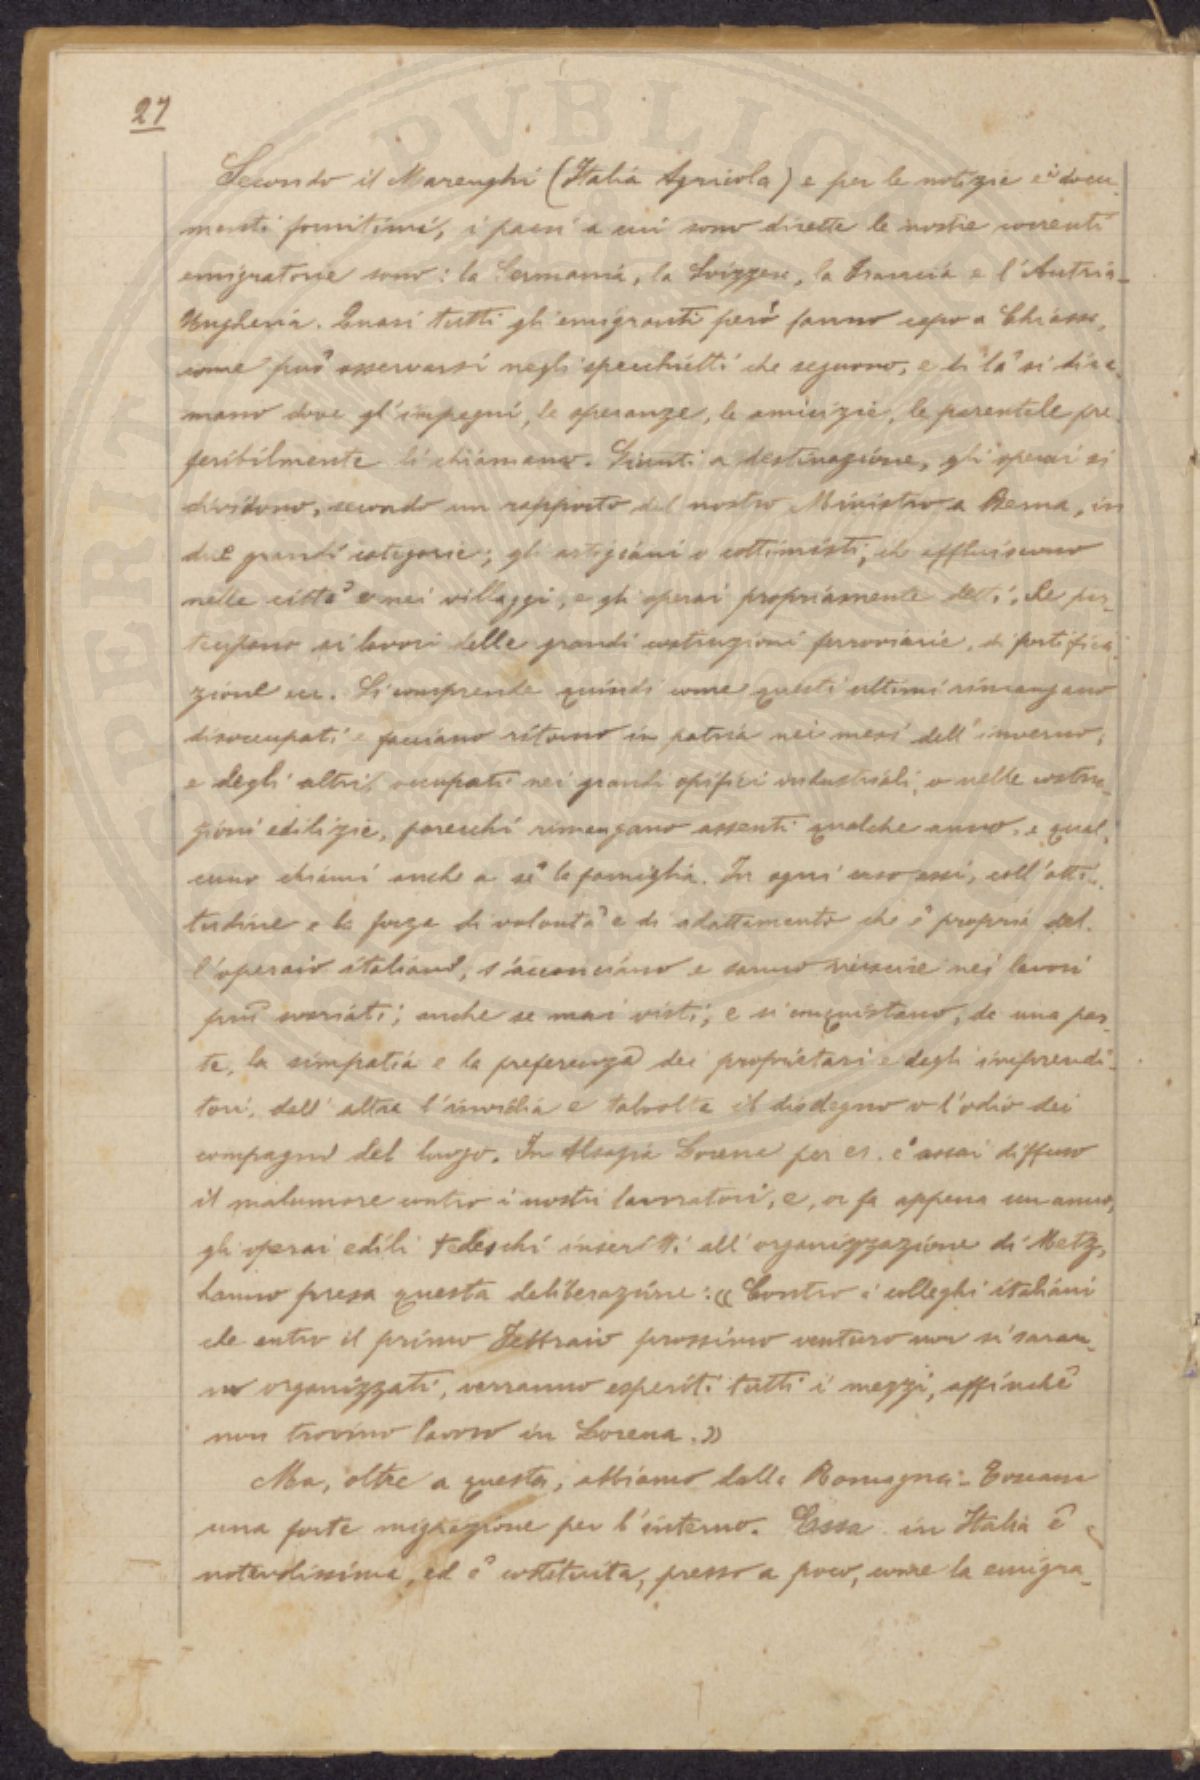 27
Secondo il Marenghi (Italia Agricola) e per le notizie e i docu-
menti fornitimi, i paesi a cui sono dirette le nostre correnti
emigratorie sono: la Germania, la Svizzera, la Francia e l'Austria-
Ungheria. Quasi tutti gli emigranti però fanno capo a Chiasso,
come può osservarsi negli specchietti che seguono, e di là si dira-
mano dove gl'impegni, le speranze, le amicizie, le parentele pre-
feribilmente li chiamano. Giunti a destinazione, gli operai si
dividono, secondo un rapporto del nostro Ministro a Berna, in
due grandi categorie; gli artigiani o cottimisti, che affluiscono
nelle città e nei villaggi, e gli operai propriamente detti, che par-
tecipano ai lavori delle grandi costruzioni ferroviarie, di fortifica-
zione ecc. Si comprende quindi come questi ultimi rimangano
disoccupati e facciano ritorno in patria nei mesi dell'inverno,
e degli altri, occupati nei grandi opifici industriali, o nelle costru-
zioni edilizie, parecchi rimangano assenti qualche anno, e qual-
cuno chiami anche a sè la famiglia. In ogni caso essi, coll'atti-
tudine e la forza di volontà e di adattamento che è propria del-
l'operaio italiano, s'acconciano e sanno riuscire nei lavori
più svariati, anche se mai visti, e si conquistano, da una par-
te, la simpatia e la preferenza dei proprietari e degli imprendi-
tori, dall'altra l'invidia e talvolta il disdegno o l'odio dei
compagni del luogo. In Alsazia Lorena per es. è assai diffuso
il malumore contro i nostri lavoratori, e, or fa appena un anno,
gli operai edili tedeschi inscritti all'organizzazione di Metz,
hanno presa questa deliberazione: «Contro i colleghi italiani
che entro il primo Febbraio prossimo venturo non si saran-
no organizzati, verranno esperiti tutti i mezzi, affinchè
non trovino lavoro in Lorena.»
Ma, oltre a questa, abbiamo dalla Romagna-Toscana
una forte migrazione per l'interno. Essa in Italia è
notevolissima, ed è costituita, presso a poco, come la emigra-
PVBLICA